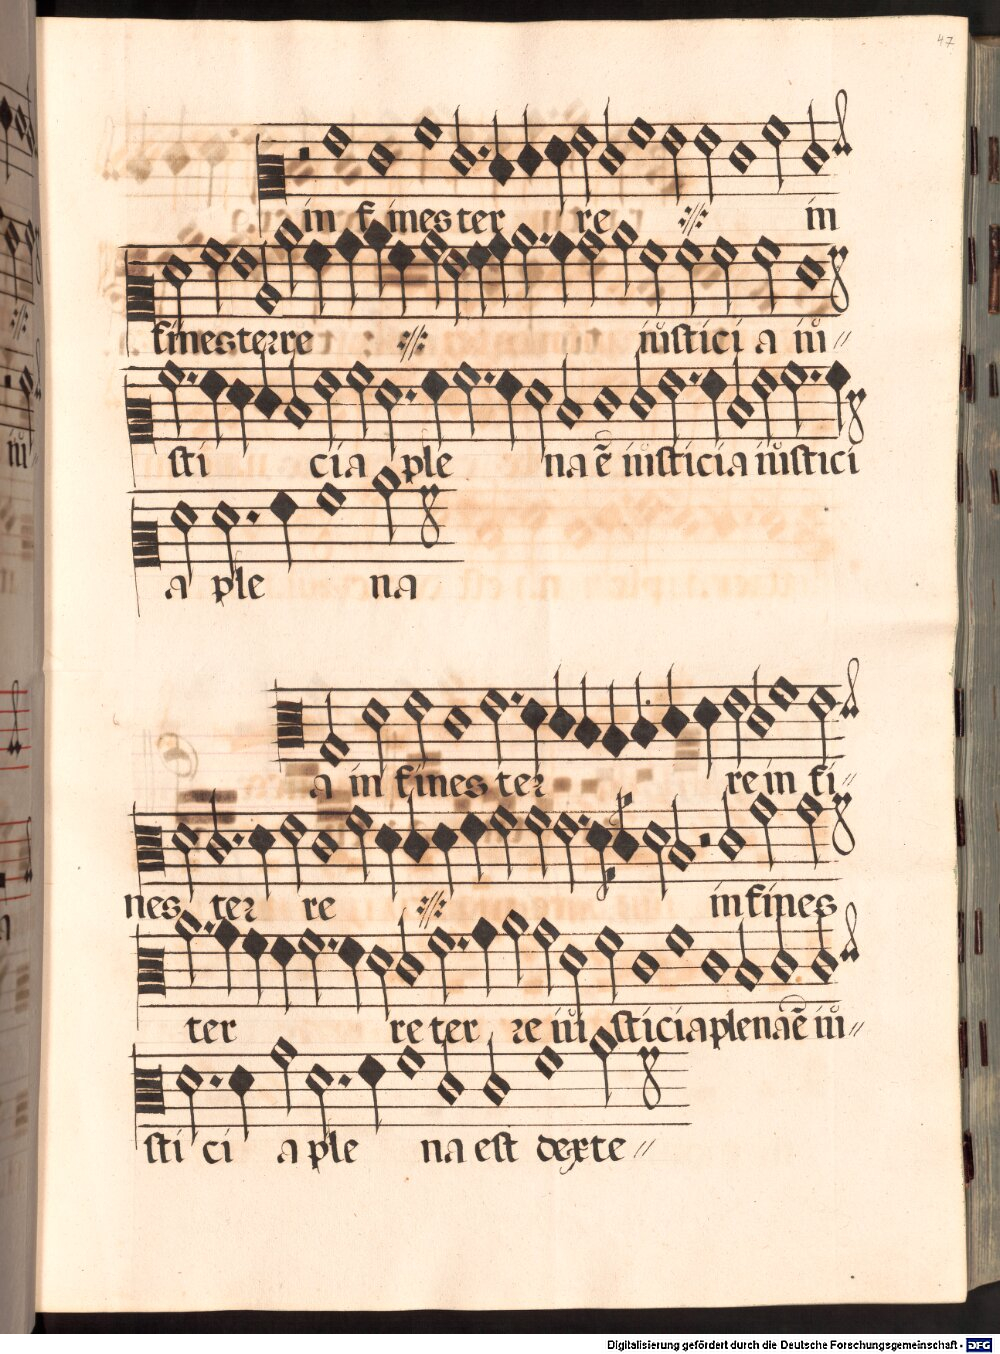 47
in fines ter re in
fines terre iusticia iu//
sti cia ple na ē iusticia iustici
a ple na
a in fines ter re in fi//
nes ter re in fines
ter re ter re iu sticia plena ē iu//
sti ci a ple na est dexte//
Digitalisierung gefördert durch die Deutsche Forschungsgemeinschaft - DFG